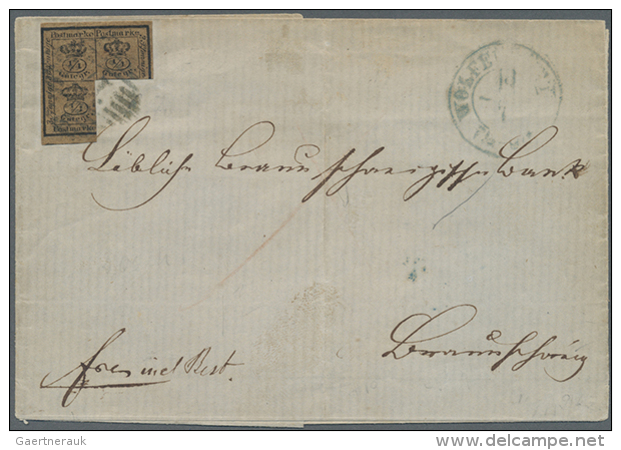 Postmarke Postmarke
1/4 1/4
Gutegr. Gutegr.
1/4
Gutegr.
Postmarke
Löbliche Braunschweigische Bank
Braunschweig
frei incl Best.
Gaertnerauk
www.delcampe.net